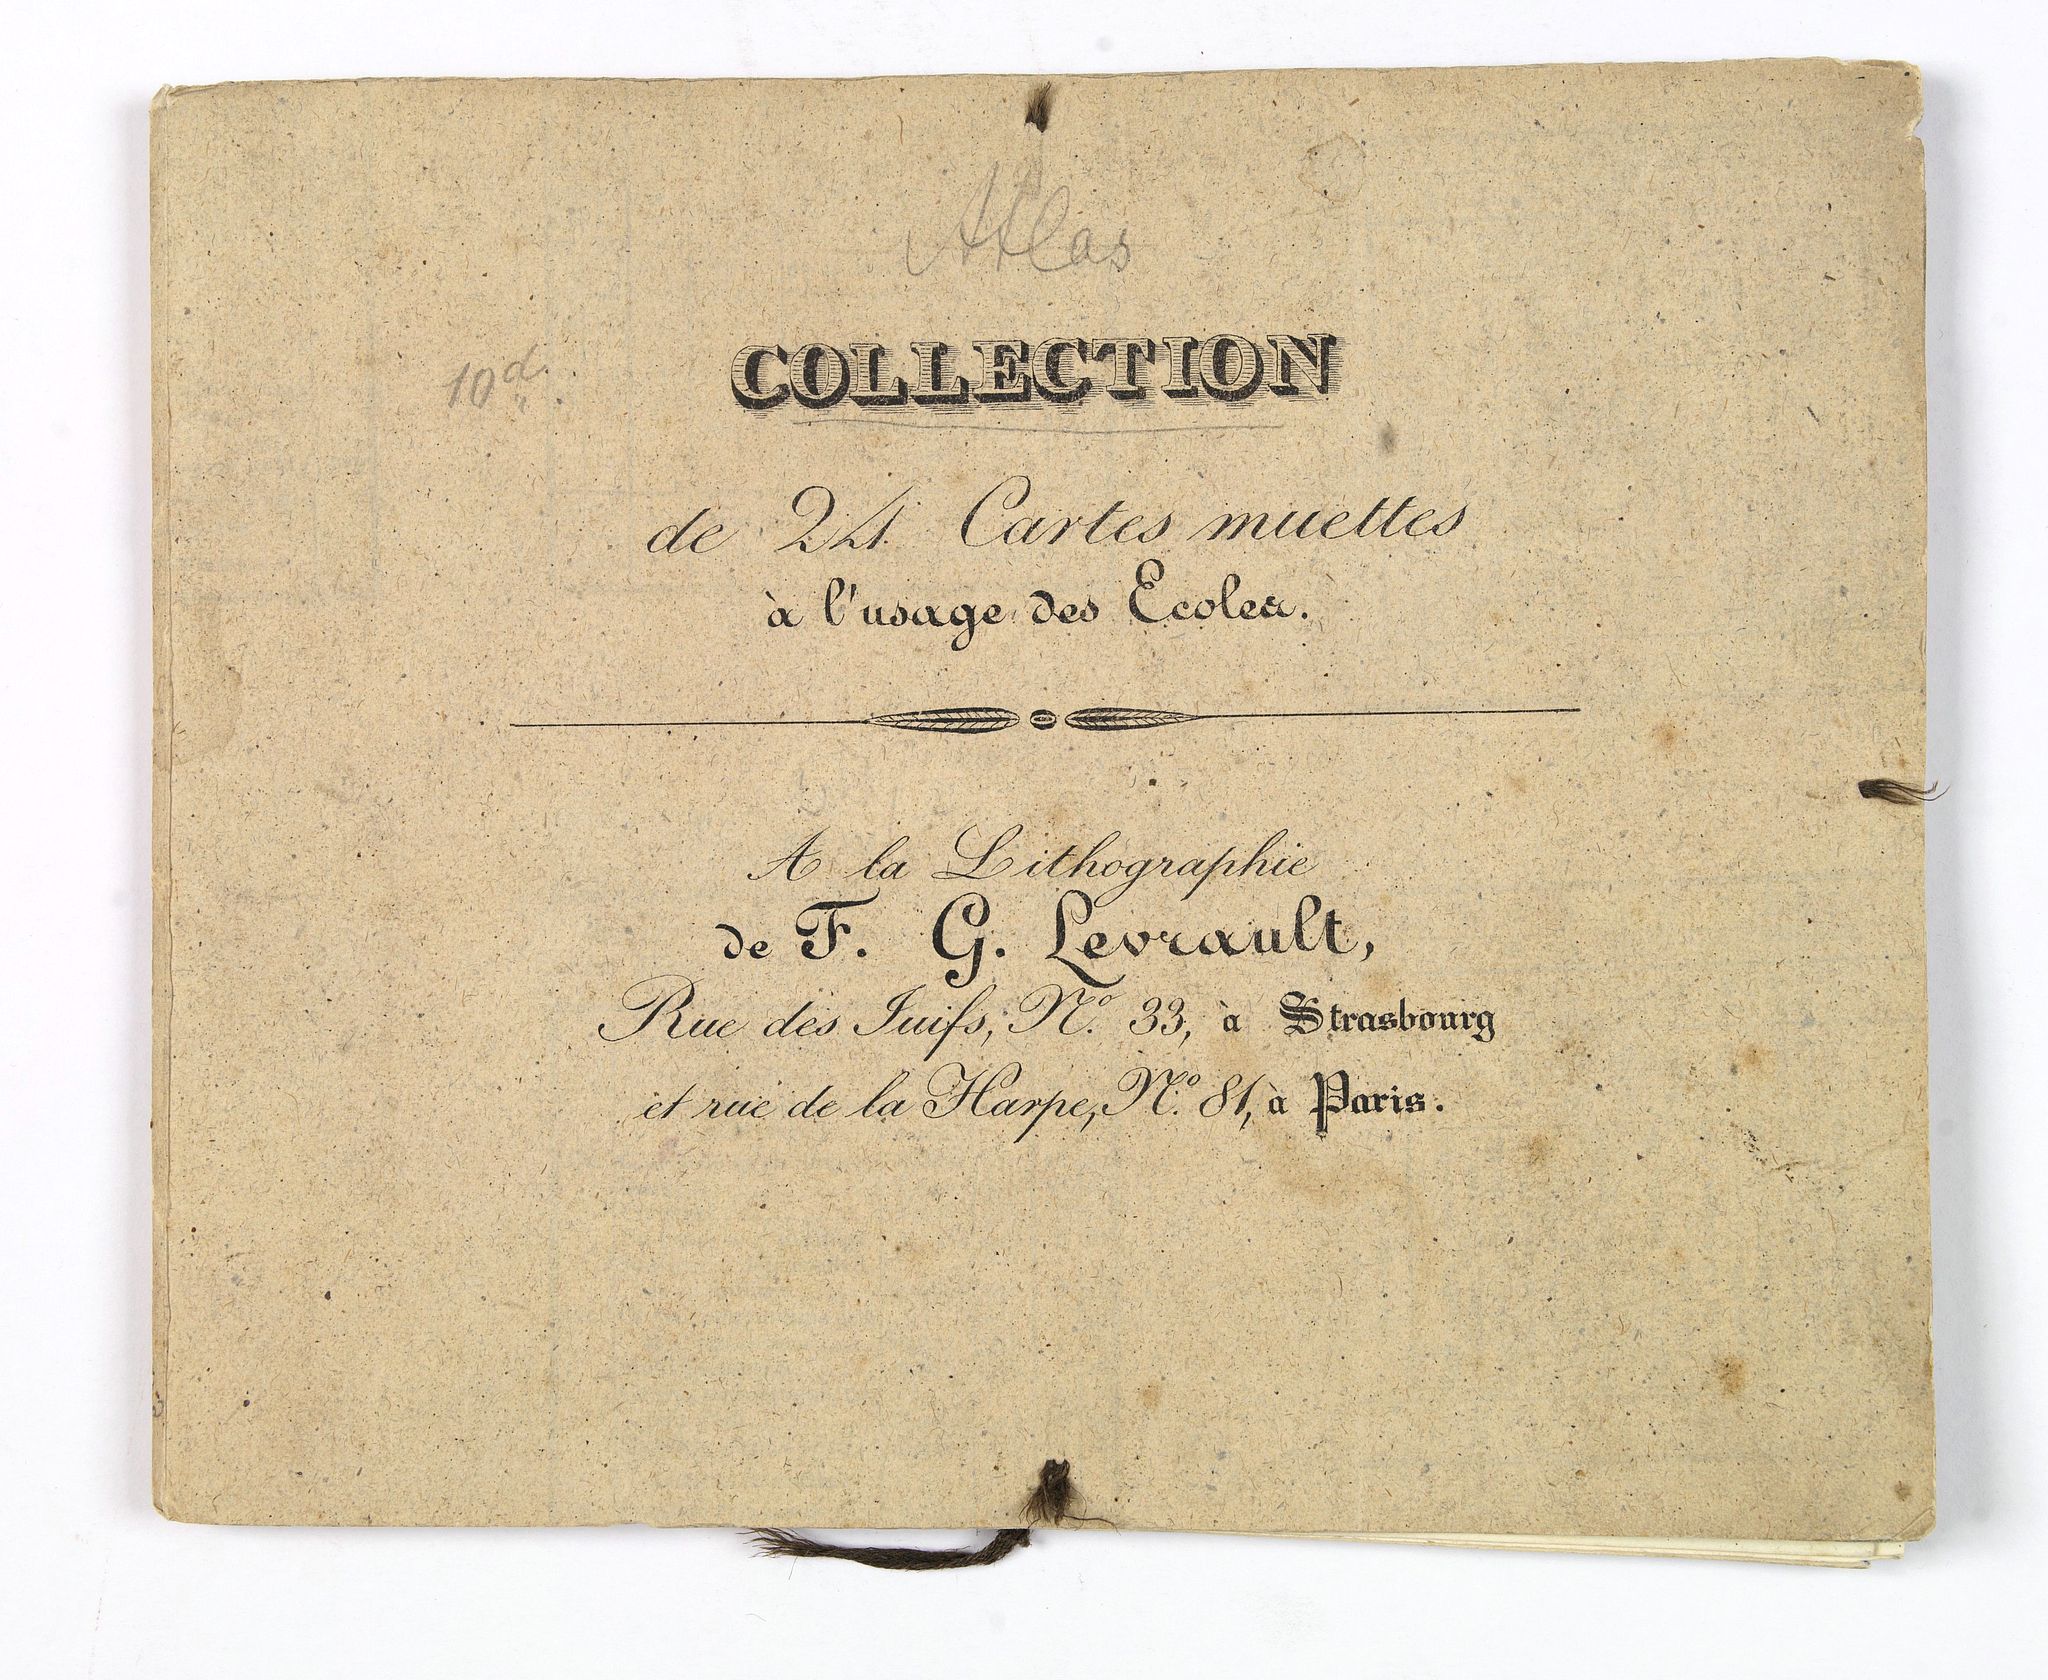 Atlas
10d.
COLLECTION
de 24 Cartes muettes
à l'usage des Ecoles.
A la Lithographie
de F. G. Levrault,
Rue des Juifs, No. 33, à Strasbourg
et rue de la Harpe, No. 81, à Paris.